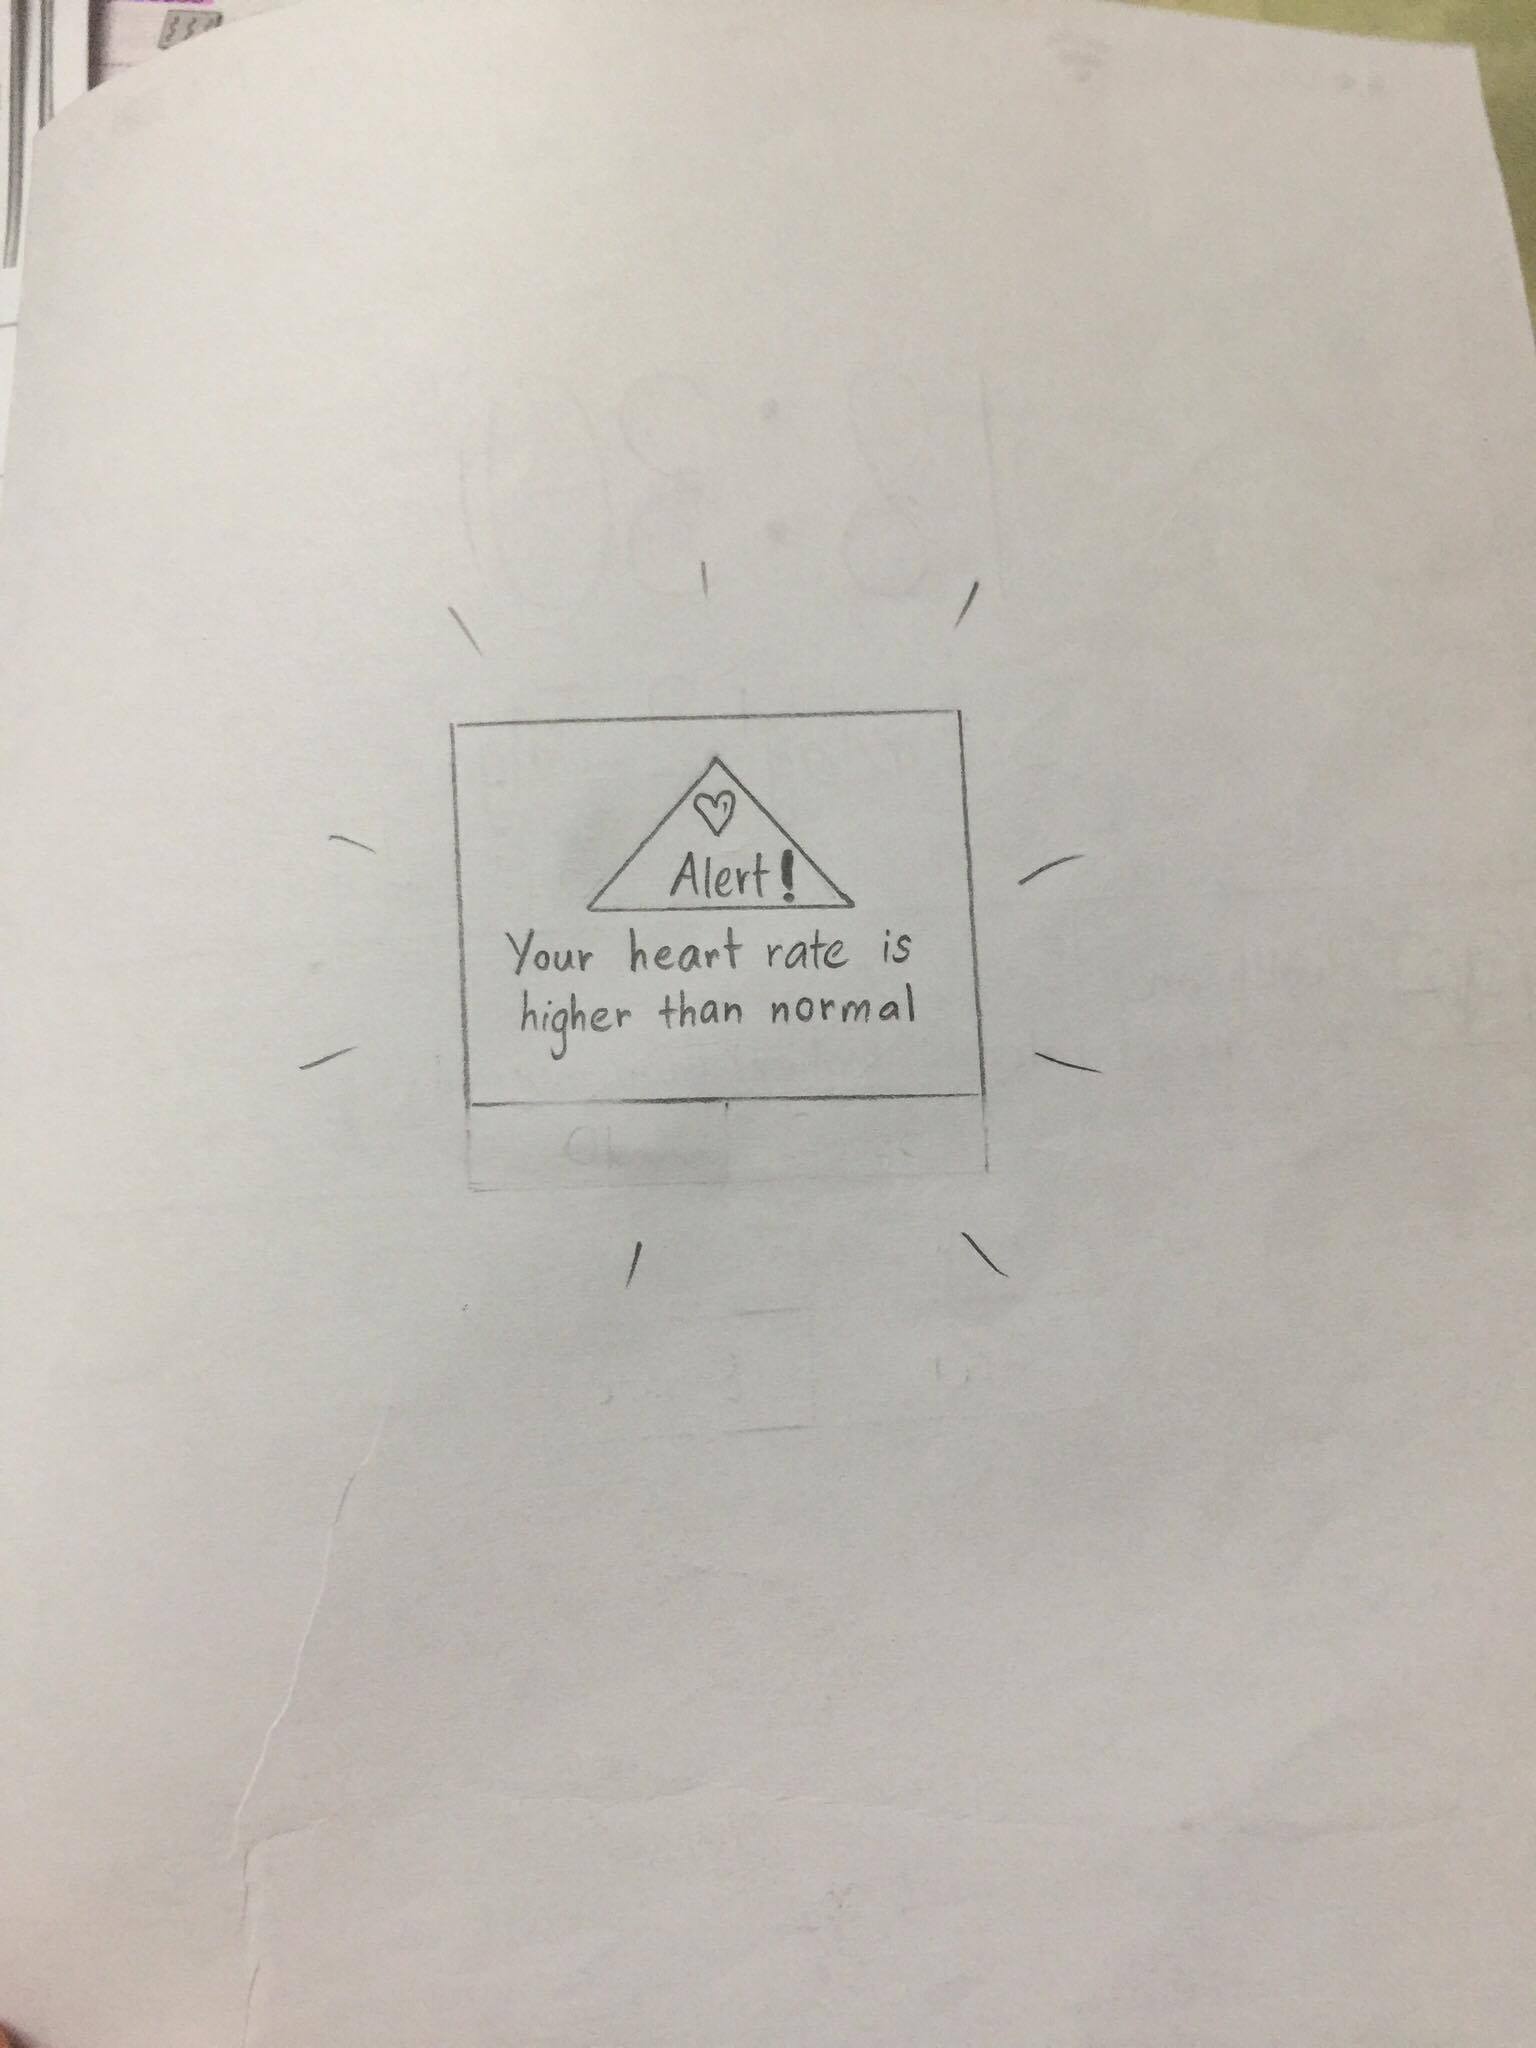 Alert!
Your heart rate is
higher than normal